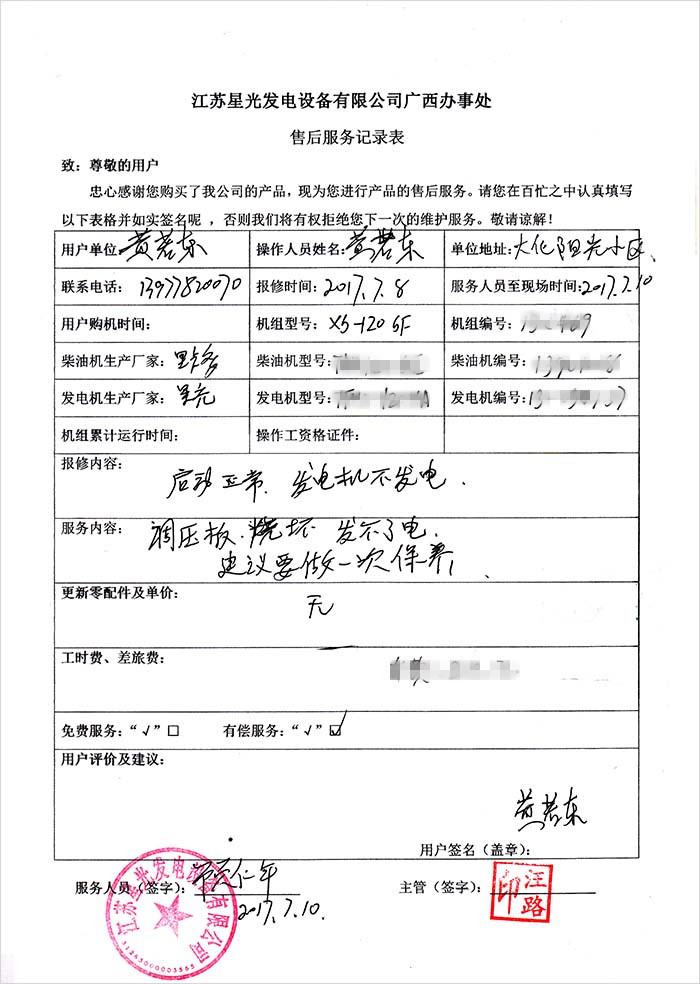 江苏星光发电设备有限公司广西办事处
售后服务记录表
致：尊敬的用户
忠心感谢您购买了我公司的产品，现为您进行产品的售后服务。请您在百忙之中认真填写
以下表格并如实签名呢 ，否则我们将有权拒绝您下一次的维护服务。敬请谅解！
用户单位 黄若东 操作人员姓名: 黄若东 单位地址: 大化阳光小区
联系电话: 13977820070 报修时间: 2017.7.8 服务人员至现场时间: 2017.7.10
用户购机时间: 机组型号: XS-120GF 机组编号:
柴油机生产厂家: 柴油机型号: 柴油机编号:
发电机生产厂家: 星光 发电机型号: 发电机编号:
机组累计运行时间: 操作工资格证件:
报修内容:
启动正常. 发电机不发电.
服务内容: 调压板.烧坏 发不了电.
建议要做一次保养
更新零配件及单价:
无
工时费、差旅费:
免费服务: “√”□ 有偿服务: “√”☑
用户评价及建议:
黄若东
用户签名（盖章）:
服务人员（签字）: 仁年 主管（签字）:
2017.7.10
江苏星光发电设备有限公司
汪路印